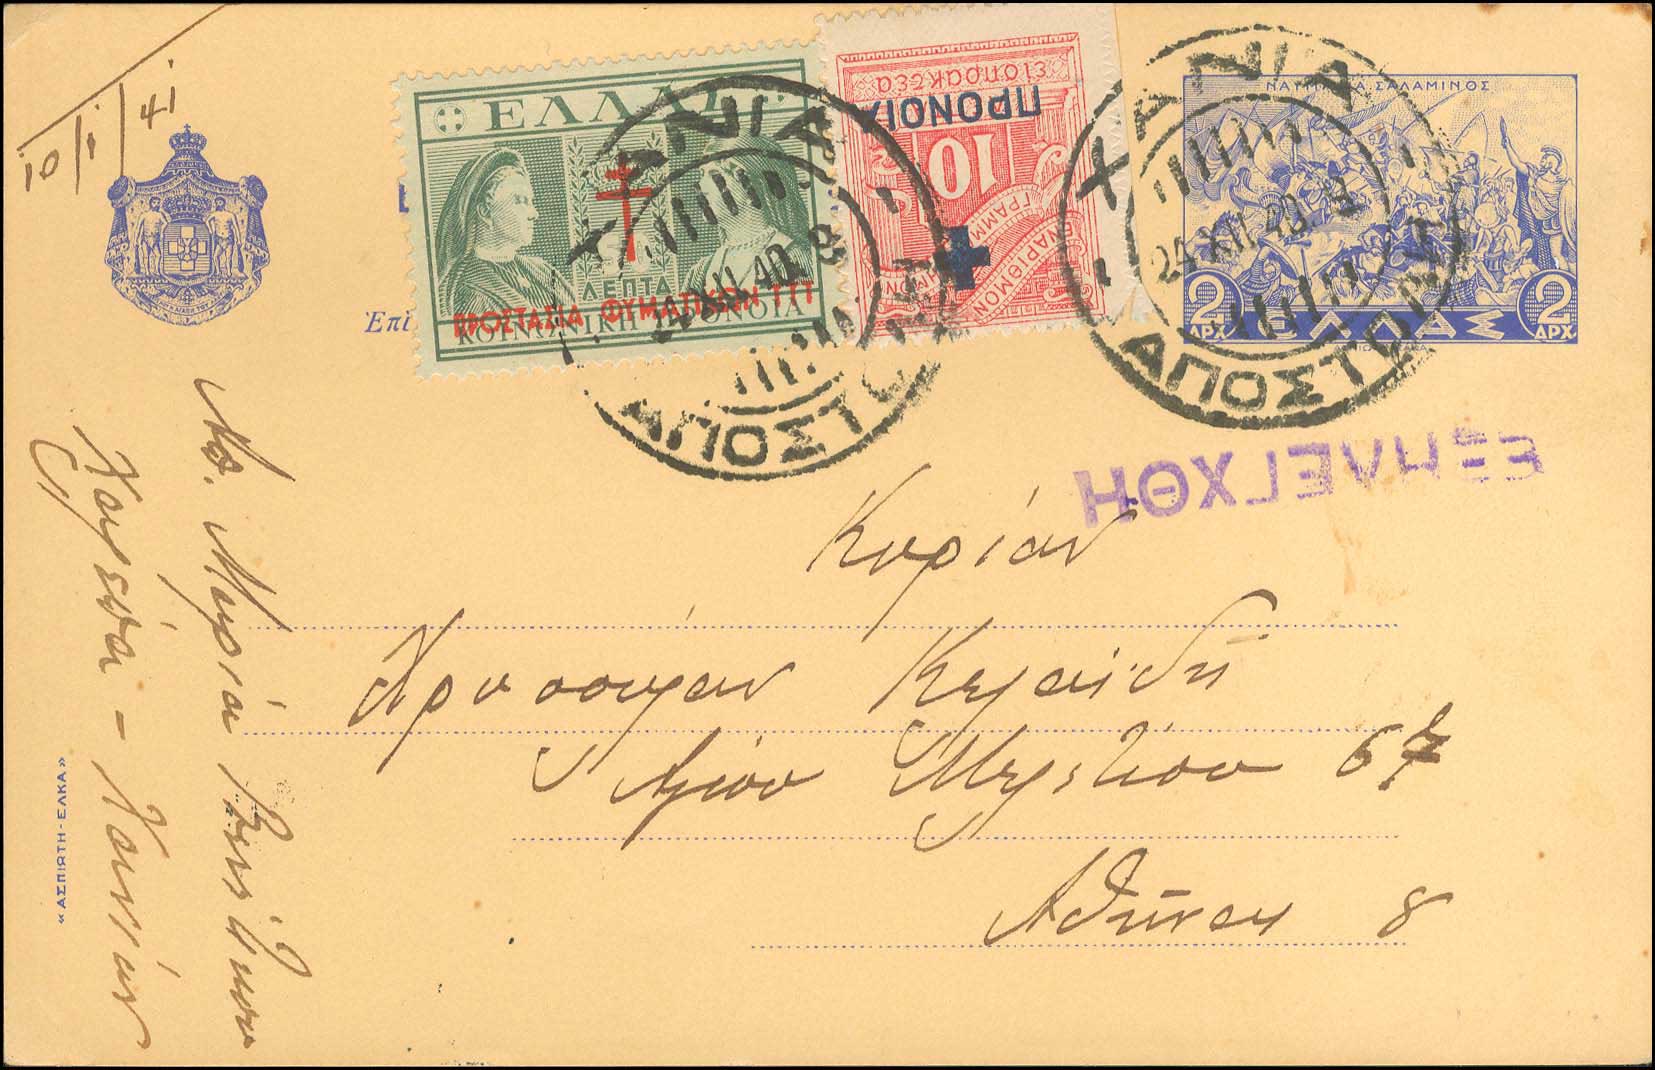 10/1/41
ΕΛΛΑΣ
ΛΕΠΤΑ
ΠΡΟΣΤΑΣΙΑ ΦΥΜΑΤΙΚΩΝ ΤΤΤ
ΚΟΙΝΩΝΙΚΗ ΠΡΟΝΟΙΑ
είσπρακτέα
ΠΡΟΝΟΙΑ
10
ΓΡΑΜΜ
ΕΝΑΡΙΘΜΟΝ
ΧΑΝΙΑ
24.XII.40. 8
ΑΠΟΣΤΟΛ
ΧΑΝΙΑ
24.XII.40.
ΑΠΟΣΤΟΛ
ΝΑΥΜΑΧΙΑ ΣΑΛΑΜΙΝΟΣ
2 ΔΡΧ. ΕΛΛΑΣ 2 ΔΡΧ.
Ἐπι
ΕΞΗΛΕΓΧΘΗ
Κυρίαν
Χρυσουγαν Κελαϊδή
Αγίου Μελετίου 67
Αθήνας 8
Μαρία
Χανιών
«ΑΣΠΙΩΤΗ-ΕΛΚΑ»